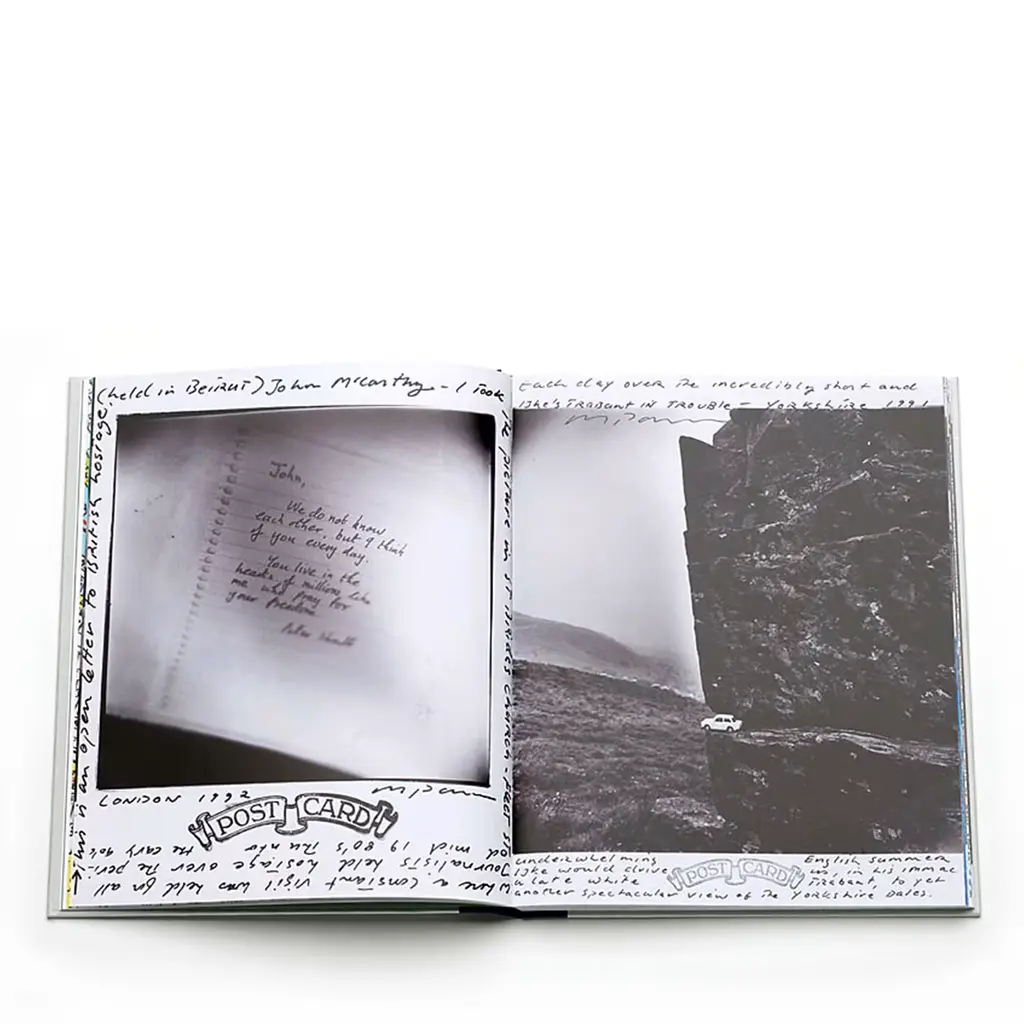 (held in BEiRUT) John McCarthy - I took
the picture in ST BRIDES CHURCH. FLEET ST.
where a constant vigil was held for all
Journalists held hostage over the peri-
od mid 1980's thru to the early 90's
This is an open letter to British hostage
John,
We do not know
each other, but I think
of you every day.
You live in the
hearts of millions like
me who pray for
your freedom.
LONDON 1992
POST CARD
Each day over the incredibly short and
IKE'S TRABANT IN TROUBLE - YORKSHIRE 1991
underwhelming English summer
Ike would drive us, in his immac
ulate white TRABANT, to yet
another spectacular view of the Yorkshire Dales.
POST CARD